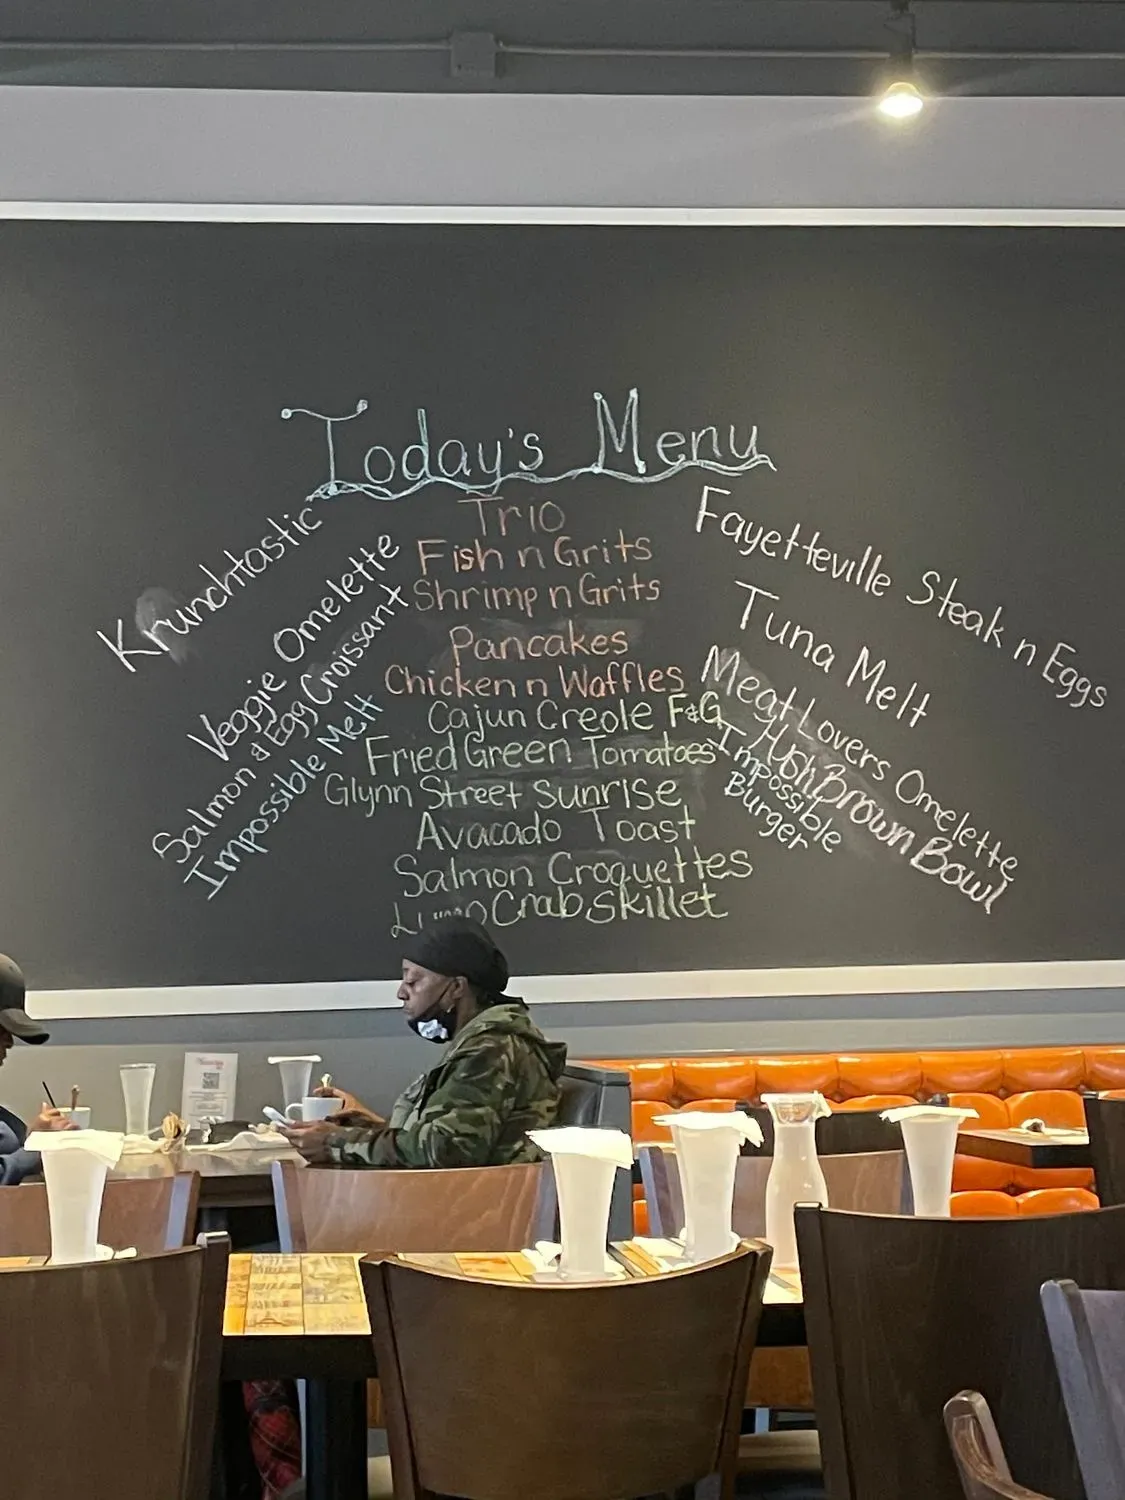 Today's Menu
Krunchtastic
Veggie Omelette
Salmon & Egg Croissant
Impossible Melt
Trio
Fish n Grits
Shrimp n Grits
Pancakes
Chicken n Waffles
Cajun Creole F&G
Fried Green Tomatoes
Glynn Street Sunrise
Avacado Toast
Salmon Croquettes
Crab Skillet
Fayetteville Steak n Eggs
Tuna Melt
Meat Lovers Omelette
HashBrown Bowl
Impossible
Burger